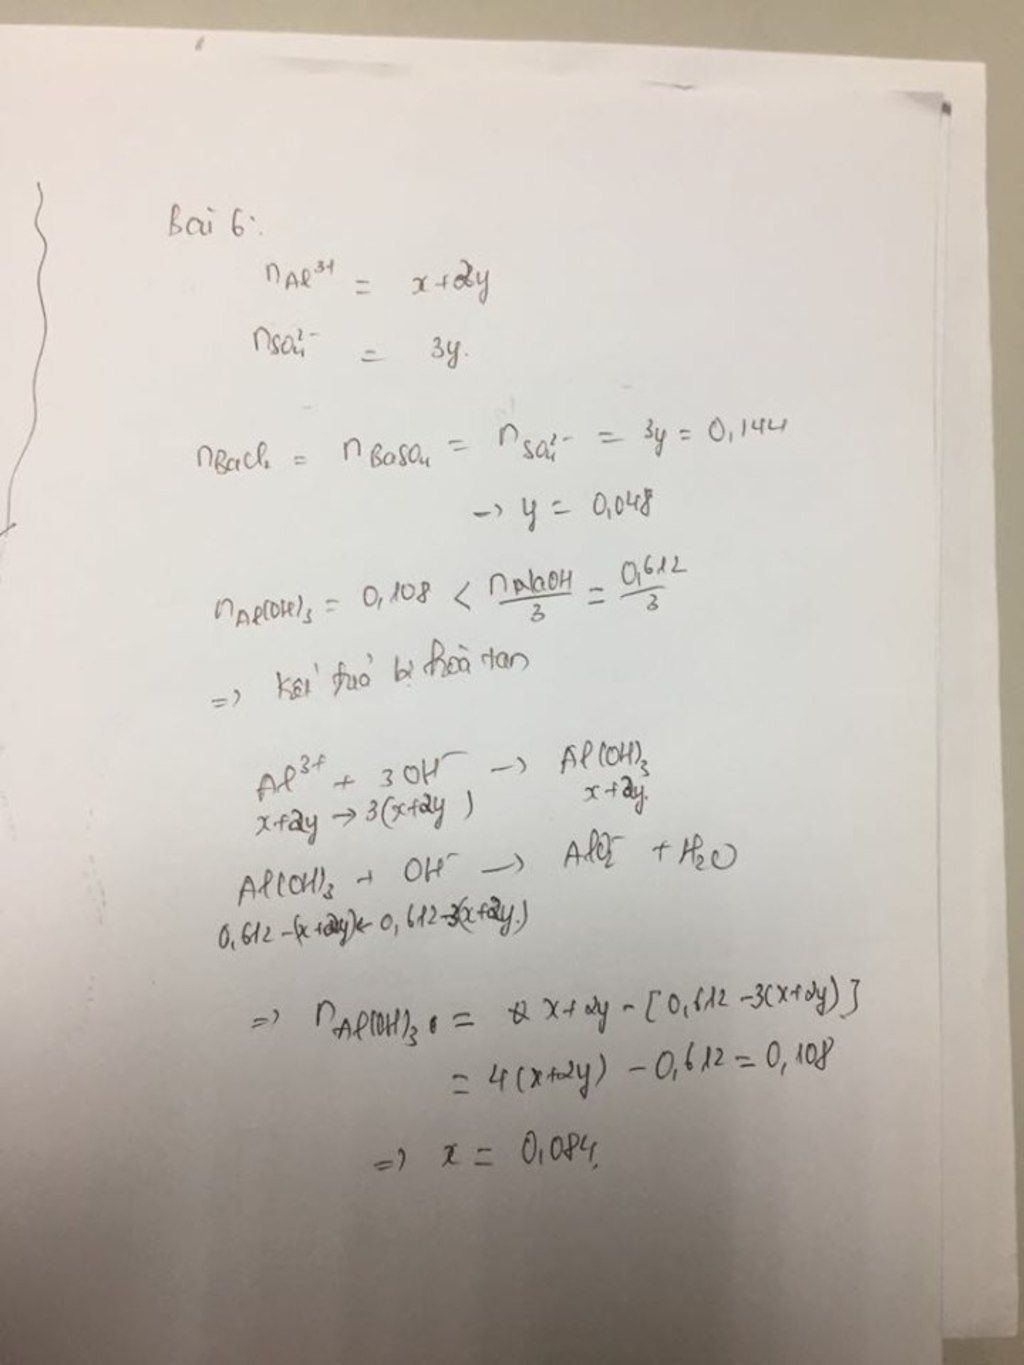 Bài 6:
nAl³⁺ = x+2y
nSO₄²⁻ = 3y.
nBaCl₂ = nBaSO₄ = nSO₄²⁻ = 3y = 0,144
-> y = 0,048
nAl(OH)₃ = 0,108 < nNaOH/3 = 0,612/3
=> Kết tủa bị hoà tan
Al³⁺ + 3OH⁻ -> Al(OH)₃
x+2y -> 3(x+2y) x+2y.
Al(OH)₃ + OH⁻ -> AlO₂⁻ + H₂O
0,612-(x+2y) <- 0,612-3(x+2y)
=> nAl(OH)₃ = x+2y - [0,612-3(x+2y)]
= 4(x+2y) - 0,612 = 0,108
=> x = 0,084.